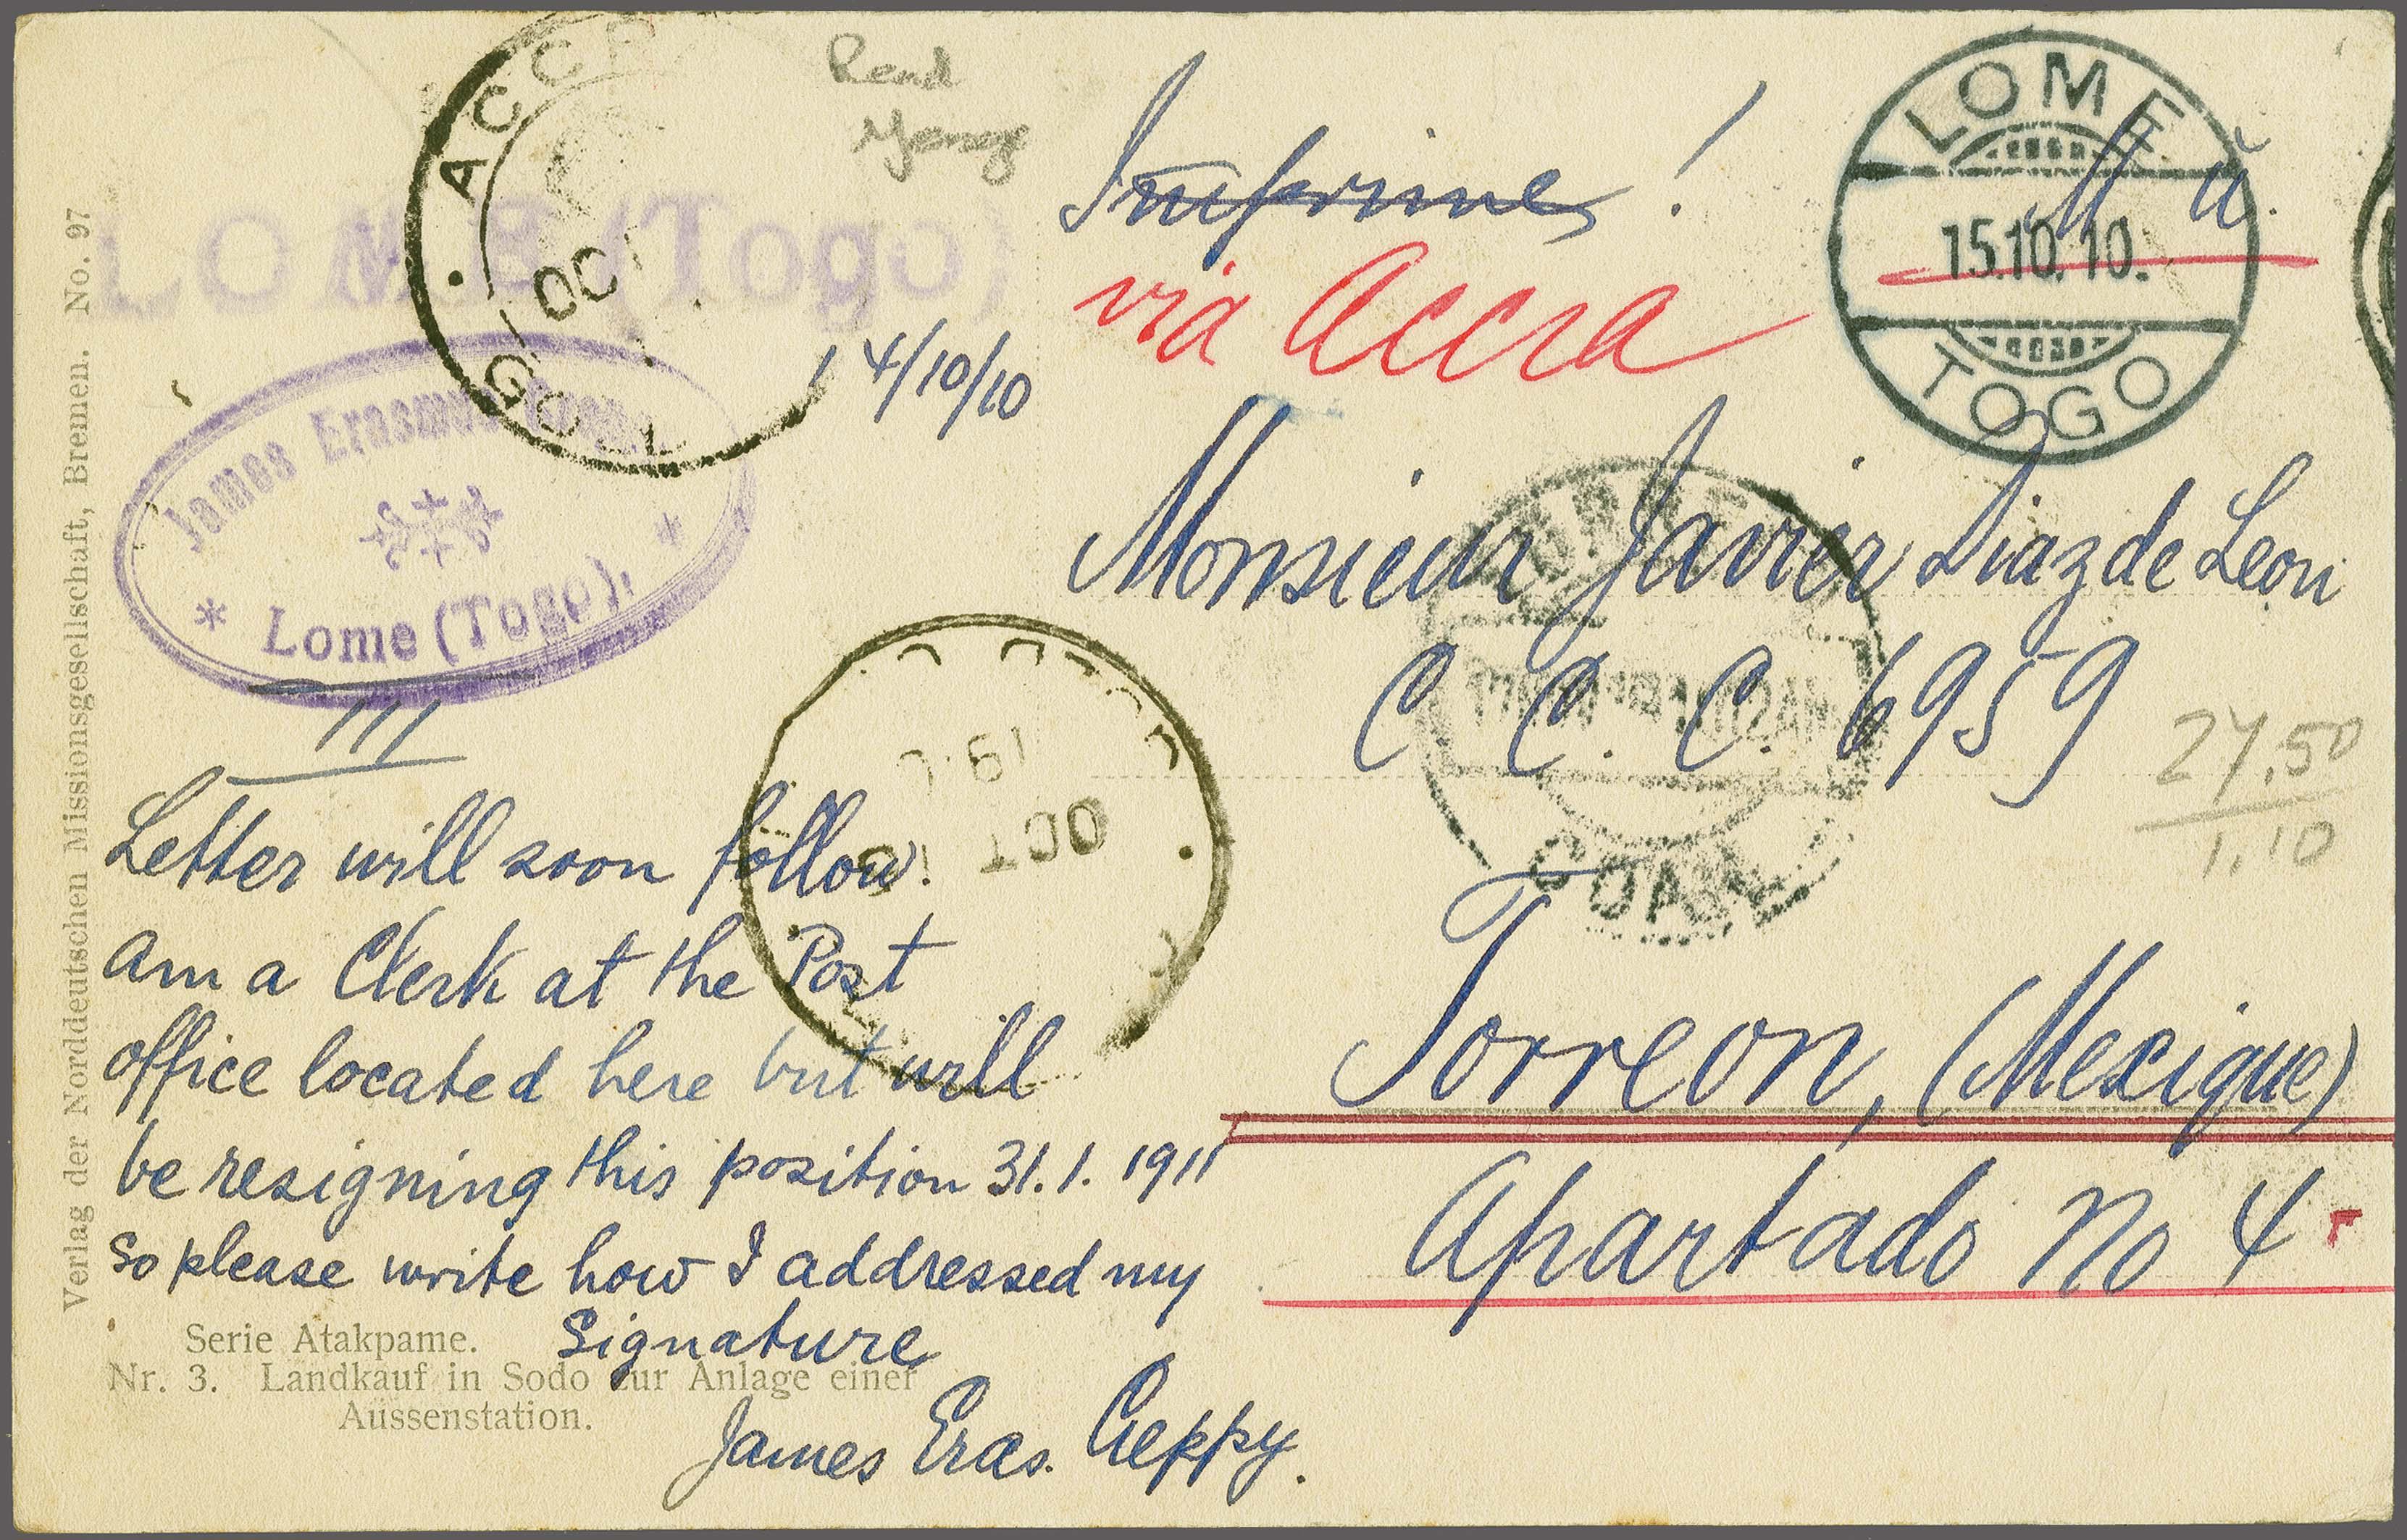 ACCRA
OCT
GOLD
LOME (Togo)
Imprimé !
via Accra
LOME
15.10.10.
TOGO
14/10/10
James Erasmus
Lome (Togo).
III
Monsieur Javier Diaz de Leon
C. C. C. 6959
COAST
OCT
27,50
1,10
Torreon, (Mexique)
Apartado No 4
Letter will soon follow.
am a Clerk at the Post
office located here but will
be resigning this position 31.1.1911
So please write how I addressed my
Signature
James Eras. Aeppy.
Serie Atakpame.
Nr. 3. Landkauf in Sodo zur Anlage einer
Aussenstation.
Verlag der Norddeutschen Missionsgesellschaft, Bremen. No. 97